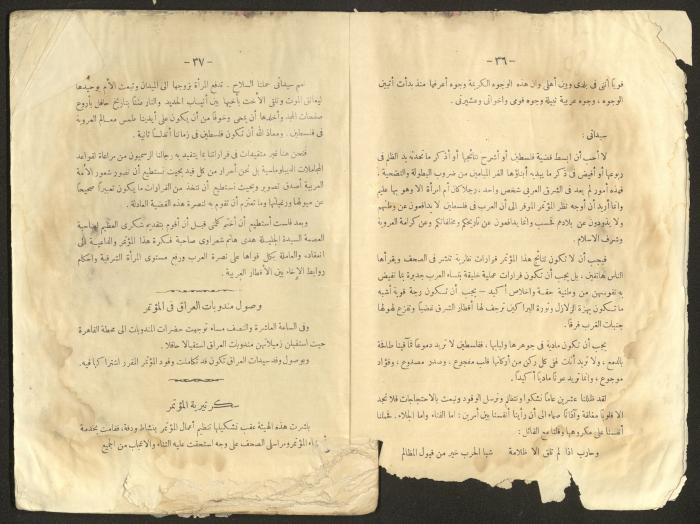 - ٣٦ -
قوياً أننى فى بلدى وبين أهلى وأن هذه الوجوه الكريمة وجوه أعرفها منذ بدأت أتبين
الوجوه ، وجوه عربية نبيلة وجوه قومى واخوانى وعشيرتى .
سيداتى :
لا أحب أن أبسط قضية فلسطين أو أشرح نتائجها أو أذكر ما تحدثه يد الظلم فى
ربوعها أو أفيض فى ذكر ما يبديه أبناؤها الغر الميامين من ضروب البطولة والتضحية .
فهذه أمور لم يعد فى الشرق العربى شخص واحد ، رجلا كان أم امرأة الا وهو بها عليم
وانما أريد أن أوجه نظر المؤتمر الموقر الى أن العرب فى فلسطين لا يدافعون عن وطنهم
ولا يذودون عن بلادهم فحسب وانما يدافعون عن تاريخكم ومخلفاتكم وعن كرامة العروبة
وشرف الاسلام .
فيجب أن لا تكون نتائج هذا المؤتمر قرارات نظرية تنشر فى الصحف ويقرأها
الناس هاتفين ، بل يجب أن تكون قرارات عملية خليقة بنساء العرب جديرة بما تفيض
به نفوسهن من وطنية حقة واخلاص أكيد – يجب أن تسكون رجة قوية أشبه
ما تسكون بهزة الزلازل وثورة البراكين ترجف لها أقطار الشرق غضباً وتفزع لهولها
جنبات الغرب فرقاً .
يجب أن تكون مادية فى جوهرها ولبابها ، ففلسطين لا تريد دموعاً فمآقينا طافحة
بالدمع ، ولا تريد أنات ففى كل ركن من أركانها قلب مفجوع ، وصدر مصدوع ، وفؤاد
موجوع ، وانما تريد عوناً مادياً أكيداً .
لقد ظللنا عشرين عاماً نشكو وننتظر ونرسل الوفود ونبعث بالاحتجاجات فلا نجد
الا قلوباً مغلقة وآذاناً صماء الى أن رأينا أنفسنا بين أمرين : اما الفناء واما الجلاء . فحملنا
أنفسنا على مكروهها وقلنا مع القائل :
وحارب اذا لم تلق الا ظلامة شبا الحرب خير من قبول المظالم
- ٣٧ -
نعم سيداتى حملنا السلاح . تدفع المرأة بزوجها الى الميدان وتبعث الأم بوحيدها
ليعانق الموت وتلقى الأخت بأخيها بين أنياب الحديد والنار ضناً بتاريخ حافل بأروع
صفحات المجد وأخلدها أن يمحى وخوفاً من أن يكون على أيدينا طمس معالم العروبة
فى فلسطين . ومعاذ الله أن تكون فلسطين فى زماننا أندلساً ثانية .
فنحن هنا غير متقيدات فى قراراتنا بما يتقيد به رجالنا الرسميون من مراعاة لقواعد
المجاملات الدبلوماسية بل نحن أحرار من كل قيد بحيث نستطيع أن نصور شعور الأمة
العربية أصدق تصوير وبحيث نستطيع أن نتخذ من القرارات ما يكون تعبيراً صحيحاً
عن ميولها ورغباتها وما تعتزم أن تقوم به لنصرة هذه القضية العادلة .
وبعد فلست أستطيع أن أختم كلمتى قبل أن أقوم بتقديم شكرى العظيم لصاحبة
العصمة السيدة الجليلة هدى هانم شعراوى صاحبة فكرة هذا المؤتمر والداعية الى
انعقاده ، والعاملة بكل قواها على نصرة العرب ورفع مستوى المرأة الشرقية واحكام
روابط الإخاء بين الأقطار العربية .
وصول مندوبات العراق فى المؤتمر
وفى الساعة العاشرة والنصف مساء توجهت حضرات المندوبات الى محطة القاهرة
حيث استقبلن زميلاتهن مندوبات العراق استقبالا حافلا .
وبوصول وفد سيدات العراق تكون قد تكاملت وفود المؤتمر المقرر اشتراكها فيه .
سكرتيرية المؤتمر
باشرت هذه الهيئة عقب تشكيلها تنظيم أعمال المؤتمر بنشاط ودقة ، فقامت بخدمة
المؤتمر ومراسلى الصحف على وجه استحقت عليه الثناء والاعجاب من الجميع